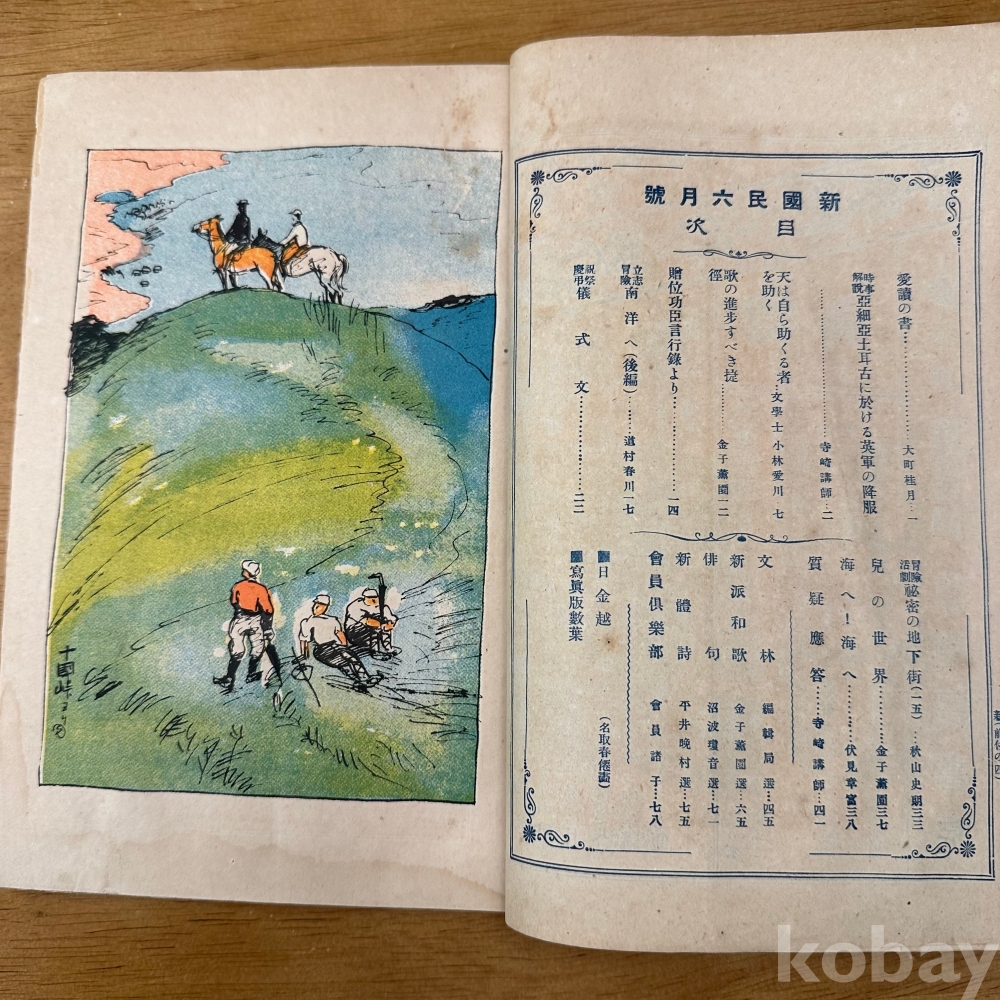 新國民六月號
目次
愛讀の書………………大町桂月…一
時事解說 亞細亞土耳古に於ける英軍の降服
………………寺崎講師…二
天は自ら助くる者…文學士 小林愛川 七
を助く
歌の進步すべき捷………金子薰園一二
徑
贈位功臣言行錄より………一四
立志冒險 南洋へ(後編)……道村春川一七
祝祭慶弔 儀式文………………二二
冒險活劇 祕密の地下街(一五)…秋山史朗三三
兒の世界………金子薰園三七
海へ!海へ………伏見章宮三八
質疑應答………寺崎講師…四一
文林 編輯局選…四五
新派和歌 金子薰園選…六五
俳句 沼波瓊音選…七一
新體詩 平井晚村選…七五
會員俱樂部 會員諸子…七八
日金越 (名取春僊畫)
寫眞版數葉
十國峠より
kobay